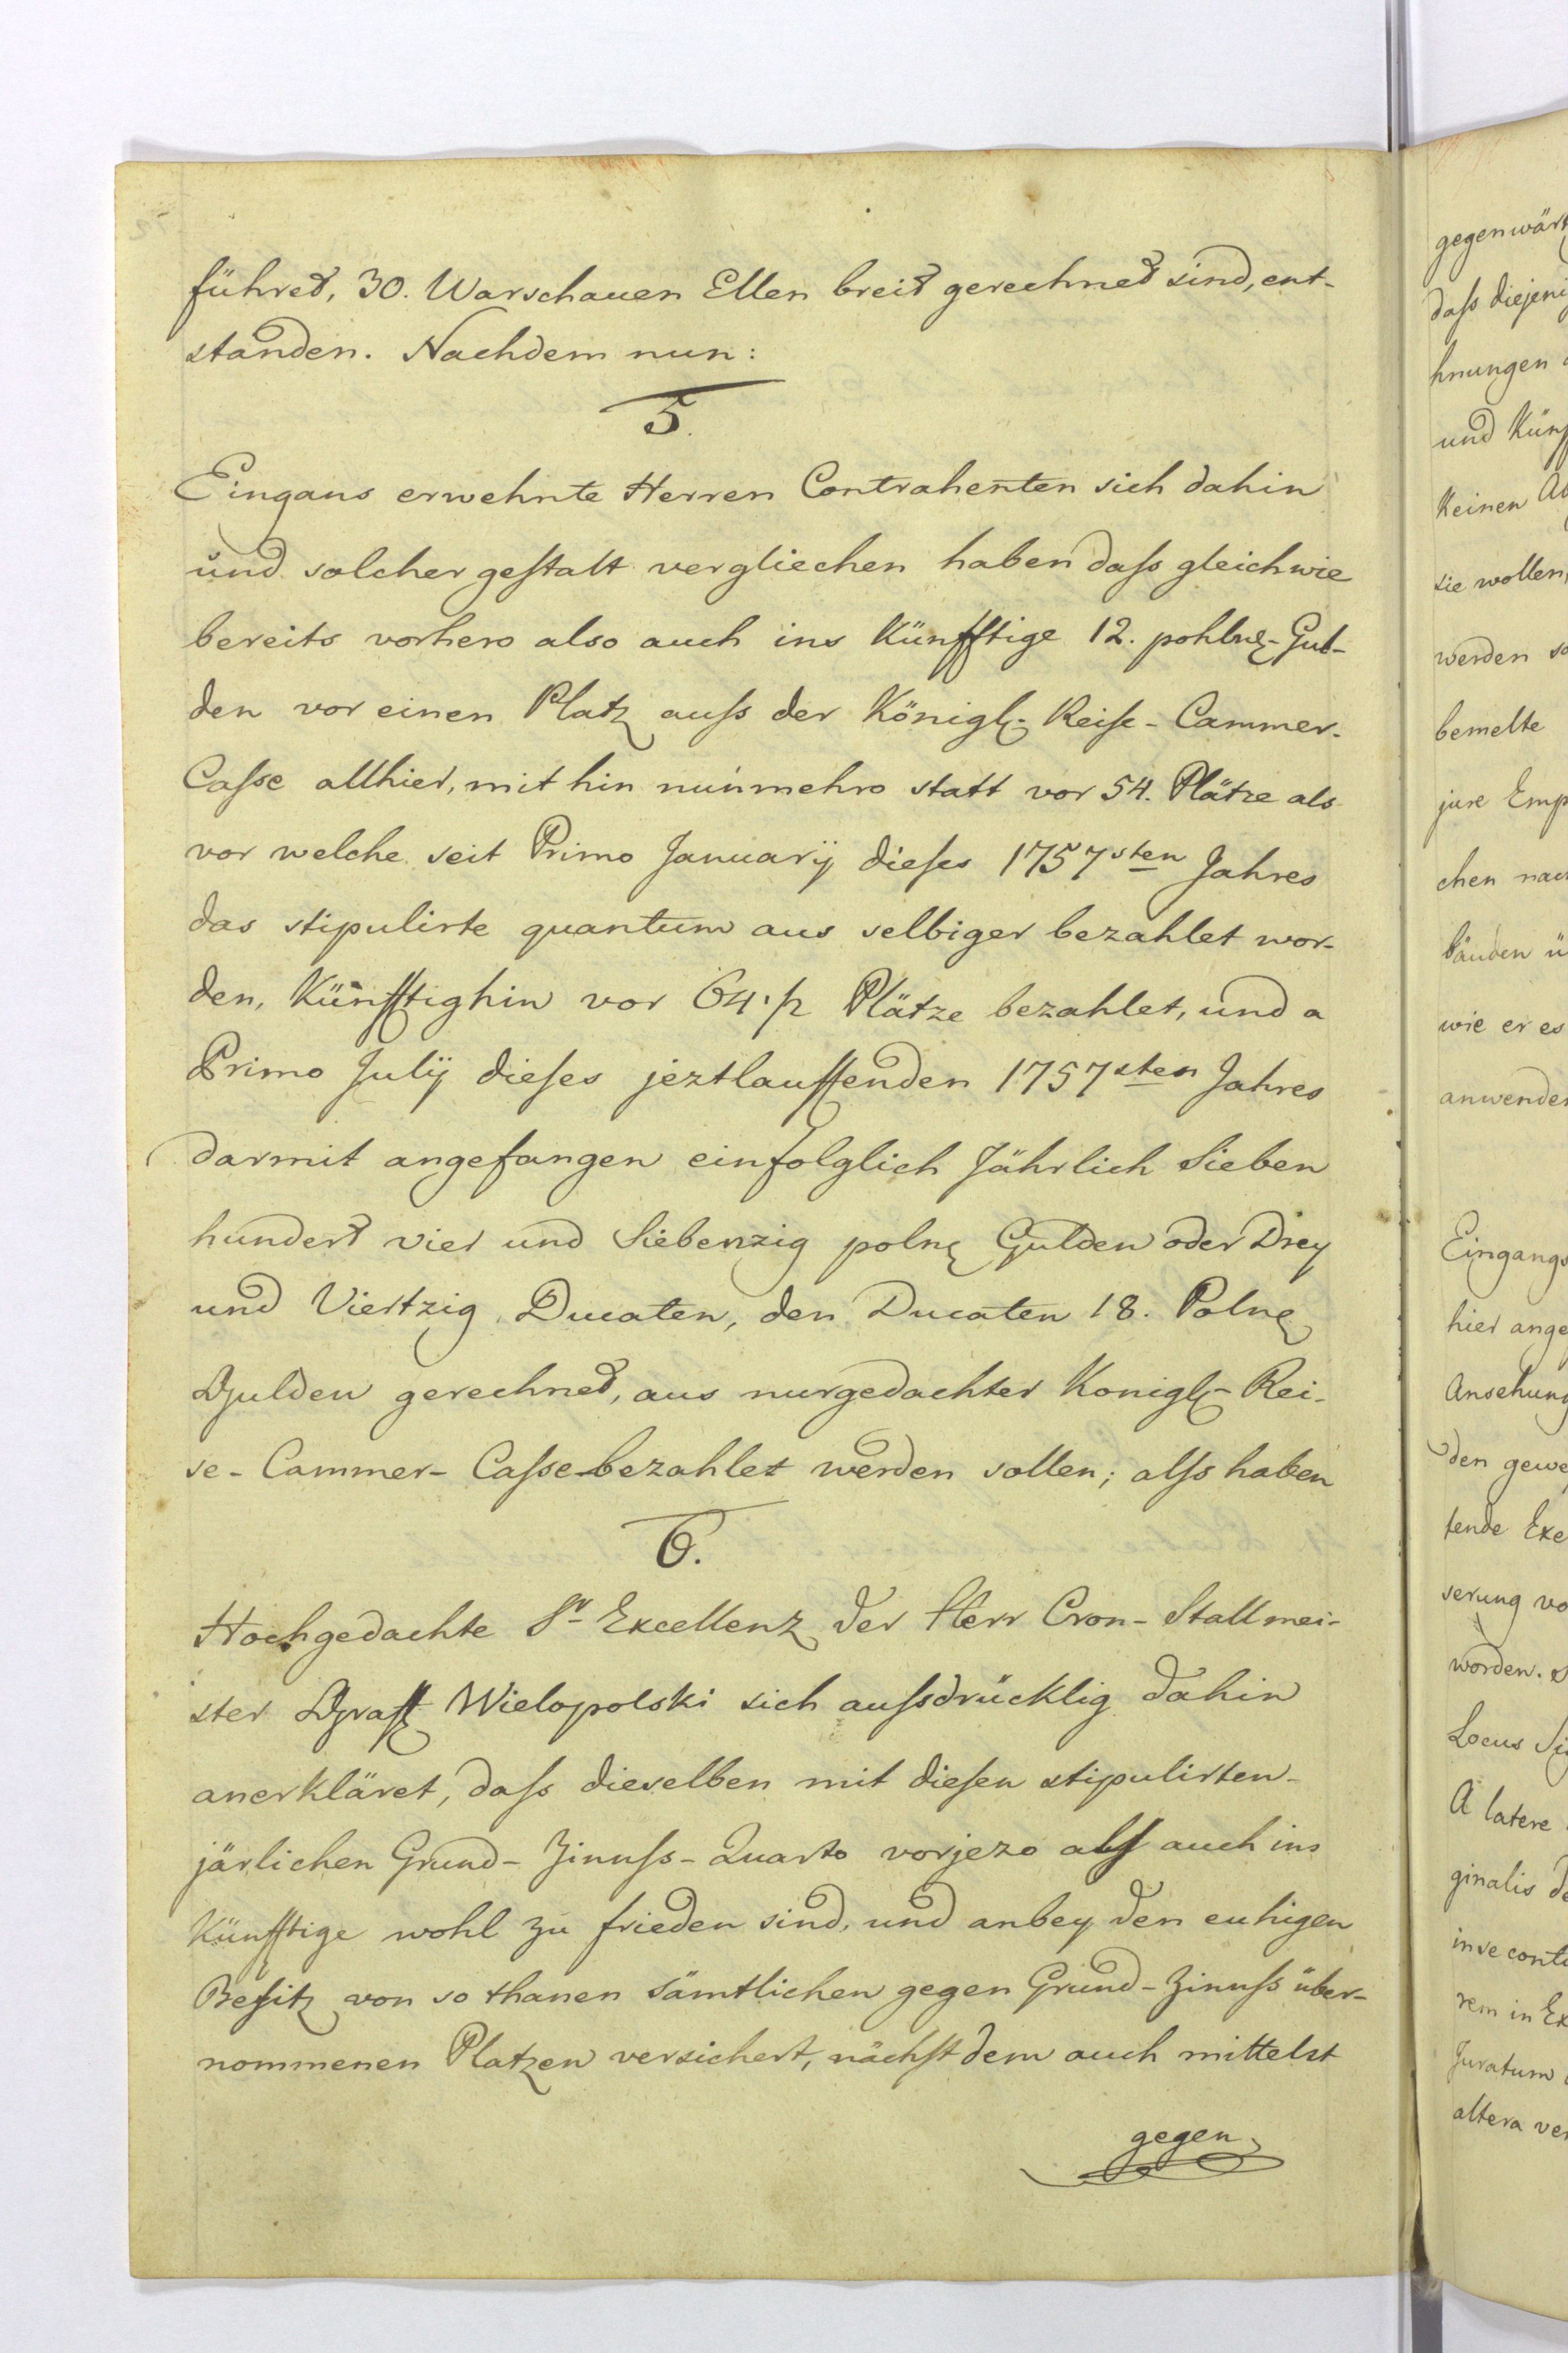 führet, 30. Warschauen Ellen breit gerechnet sind, ent-
standen. Nachdem nun:
5.
Eingans erwehnte Herren Contrahenten sich dahin
und solcher gestalt vergliechen haben daſs gleich wie
bereits vorhero also auch ins Künfftige 12. pohlne Gul-
den vor einen Platz auſs der Königl. Reiſe-Cammer-
Caſse allhier, mit hin nunmehro statt vor 54. Plätze als
vor welche seit Primo Januarÿ dieſes 1757sten Jahres
das stipulirte quantum aus selbiger bezahlet wor-
den, Künfftighin vor 64 1/2 Plätze bezahlet, und a
Primo Julÿ dieſes jeztlauffenden 1757sten Jahres
darmit angefangen einfolglich Jährlich Sieben
hundert vier und Siebenzig polne Gulden oder Drey
und Viertzig Ducaten, den Ducaten 18. Polne
Gulden gerechnet, aus nurgedachter Konigl- Rei-
se- Cammer- Caſse bezahlet werden sollen; alſs haben
6.
Hochgedachte Sr Excellenz der Herr Cron- Stallmei-
ster Graff Wielopolski sich auſsdrücklig dahin
anerkläret, daſs dieselben mit dieſen stipulirten-
järlichen Grund- Zinuſs- Quarto vorjezo alſs auch ins
Künfftige wohl zu frieden sind, und anbey den euhigen
Beſitz von so thanen sämtlichen gegen Grund- Zinuſs über-
nommenen Platzen versichert, nächſt dem auch mittelst
gegen
gegenwärt
daſs diejeni
hnungen
und Künf
Keinen
sie wollen,
werden so
bemelte
jure Emp
chen nac
bäuden ü
wie er es
anwenden
Eingangs
hier ange
Ansehung
den gewe
tende Exe
serung vo
worden.
Locus Si
A latere
ginalis de
in se conti
rem in Ex
Juratum
altera ver